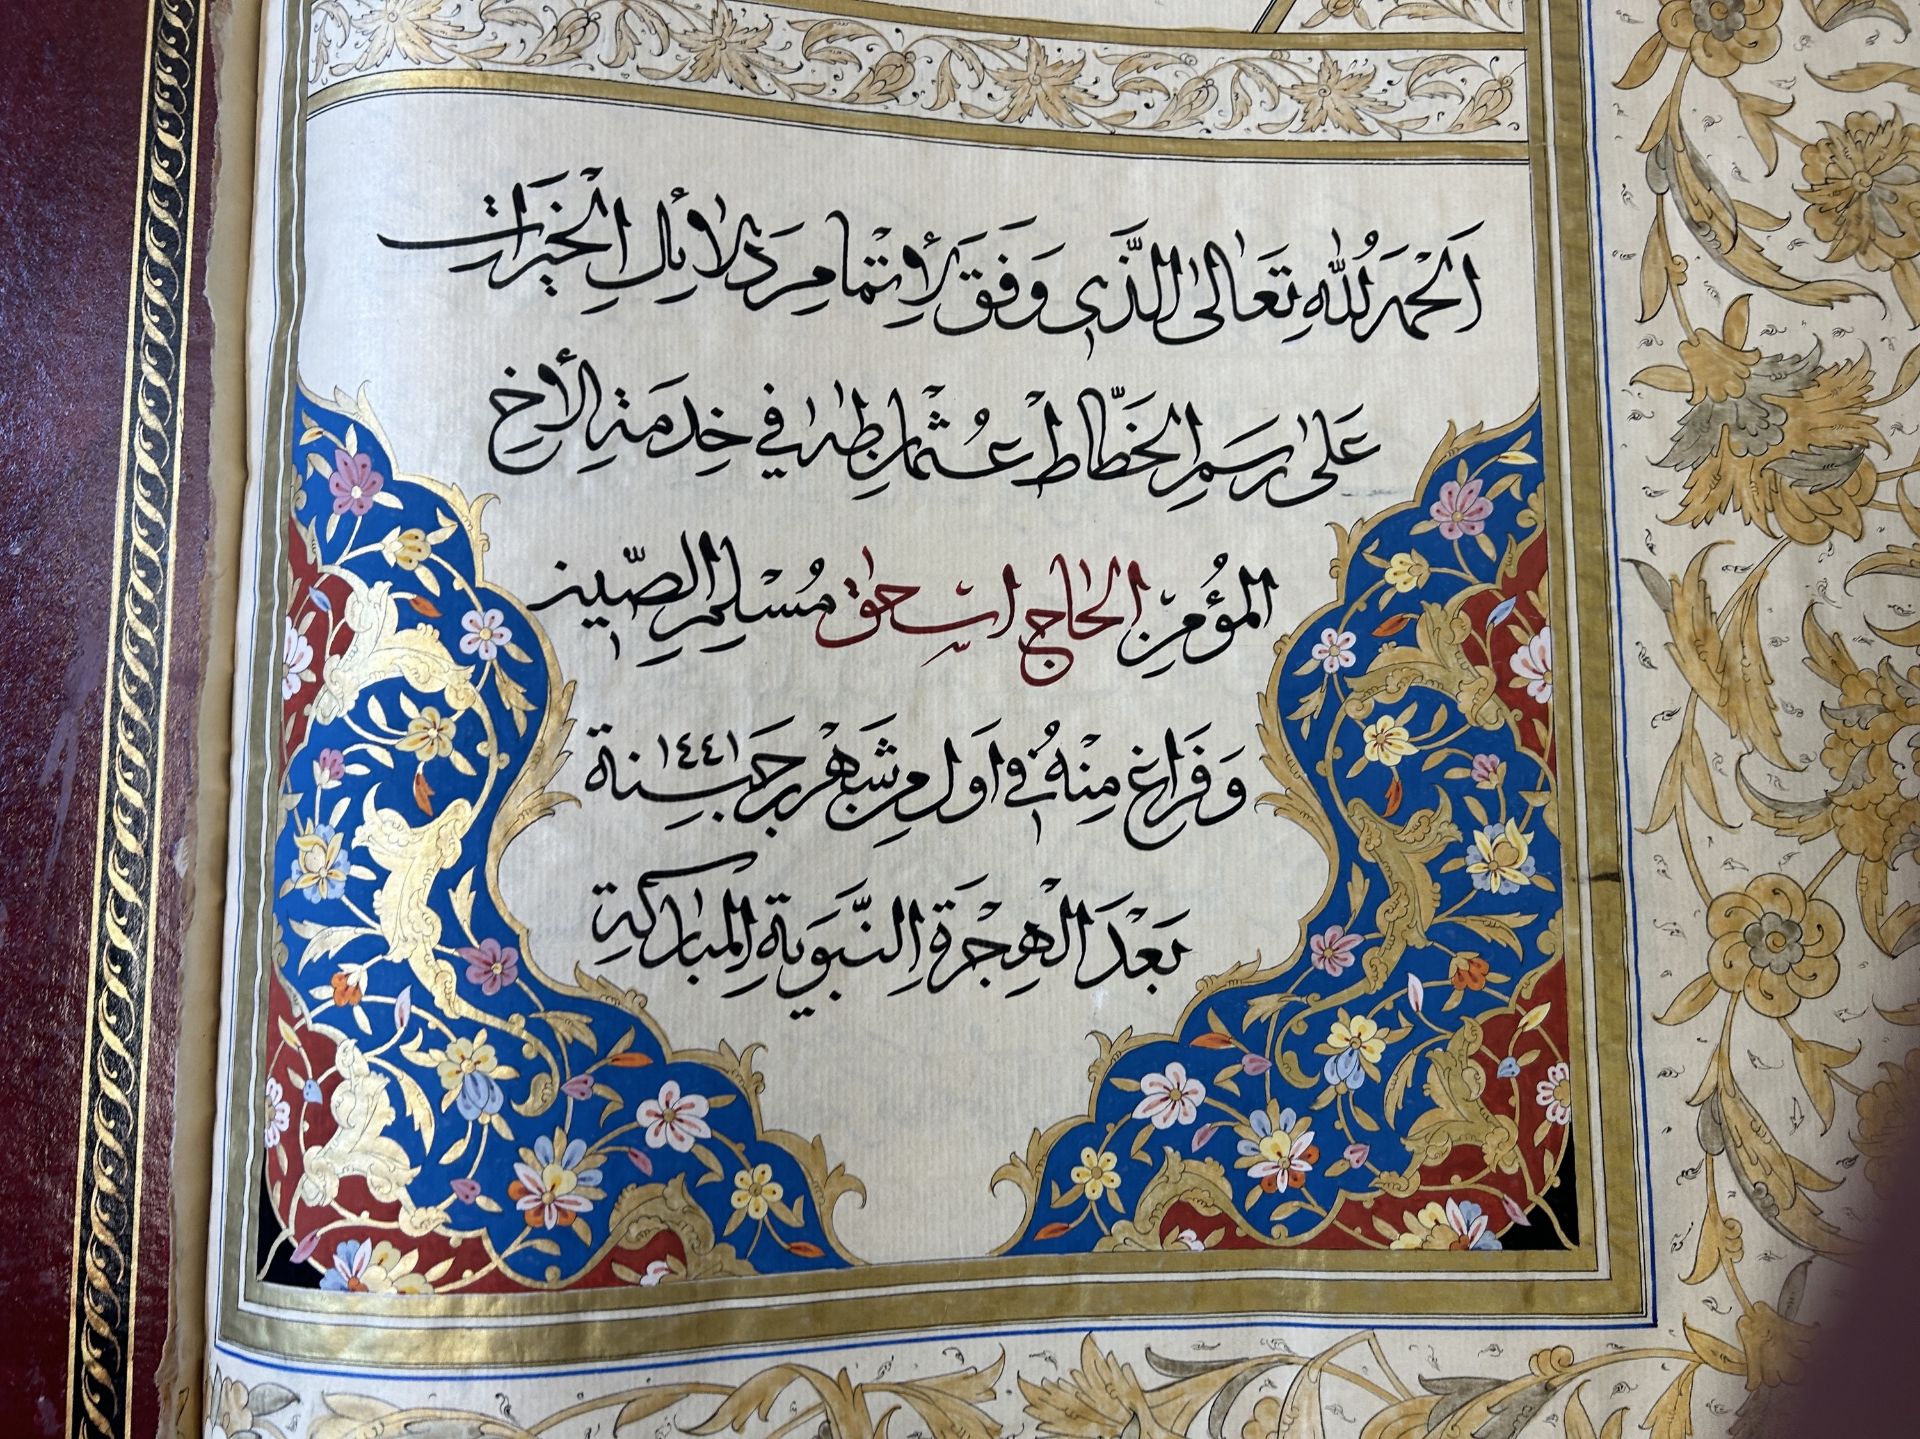 اَلْحَمْدُ لِلّٰهِ تَعَالىٰ الَّذى وَفَقَ لِأِتْمامِ دَلَائِلِ الْخَيْرَات
عَلىٰ رَسَمِ الخَطَّاطْ عُثْمان طٰهٰ في خِدمَةِ الأَخِ
المُؤمِن الحَاج اسحٰق مُسْلِم الصّين
وَفَراغ مِنْهُ في اَوَل مِن شَهْر رَجَب سِنة ١٤٤١
بَعْدَ الْهِجْرَةِ النَّبَوِيَةِ الْمبارَكةِ